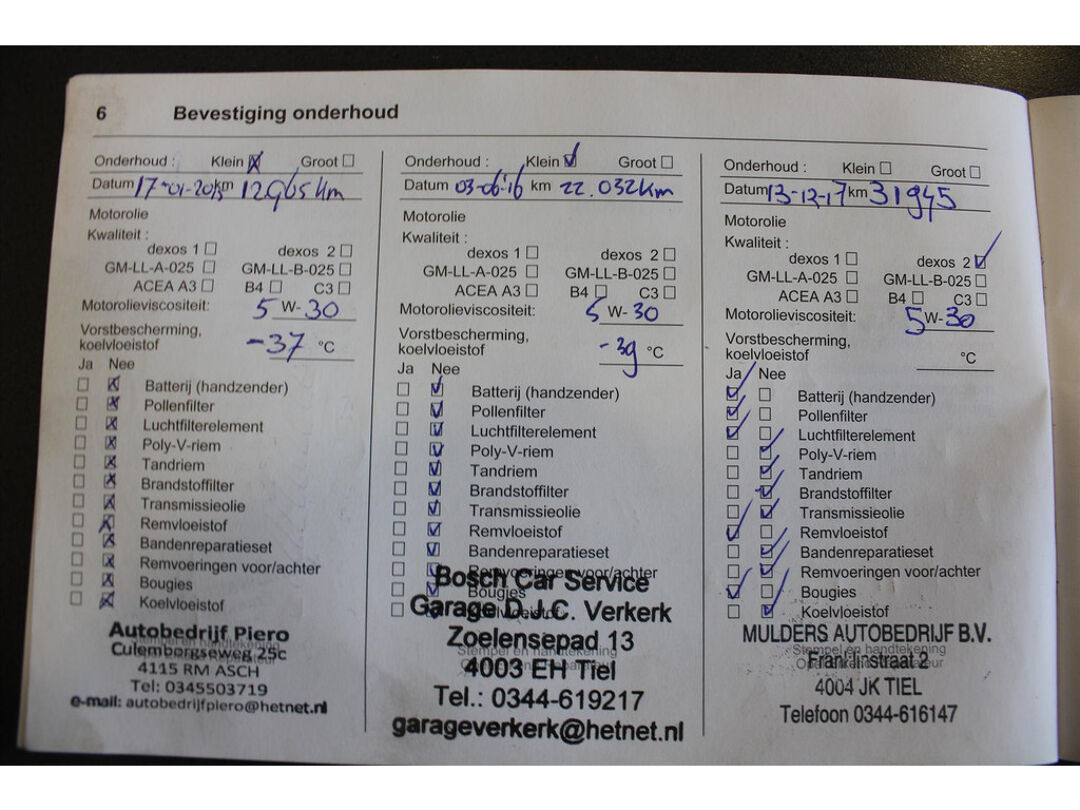 6 Bevestiging onderhoud
Onderhoud : Klein Groot
Datum 17-01-2015 km 12965 km
Motorolie
Kwaliteit :
dexos 1 dexos 2
GM-LL-A-025 GM-LL-B-025
ACEA A3 B4 C3
Motorolieviscositeit: 5 W-30
Vorstbescherming,
koelvloeistof -37 °C
Ja Nee
Batterij (handzender)
Pollenfilter
Luchtfilterelement
Poly-V-riem
Tandriem
Brandstoffilter
Transmissieolie
Remvloeistof
Bandenreparatieset
Remvoeringen voor/achter
Bougies
Koelvloeistof
Autobedrijf Piero
Culemborgseweg 25c
4115 RM ASCH
Tel: 0345503719
e-mail: autobedrijfpiero@hetnet.nl
Onderhoud : Klein Groot
Datum 03-06-'16 km 22.032km
Motorolie
Kwaliteit :
dexos 1 dexos 2
GM-LL-A-025 GM-LL-B-025
ACEA A3 B4 C3
Motorolieviscositeit: 5 W-30
Vorstbescherming,
koelvloeistof -39 °C
Ja Nee
Batterij (handzender)
Pollenfilter
Luchtfilterelement
Poly-V-riem
Tandriem
Brandstoffilter
Transmissieolie
Remvloeistof
Bandenreparatieset
Remvoeringen voor/achter
Bougies
Koelvloeistof
Bosch Car Service
Garage D.J.C. Verkerk
Zoelensepad 13
Stempel en handtekening
4003 EH Tiel
Tel.: 0344-619217
garageverkerk@hetnet.nl
Onderhoud : Klein Groot
Datum 13-12-17 km 31945
Motorolie
Kwaliteit :
dexos 1 dexos 2
GM-LL-A-025 GM-LL-B-025
ACEA A3 B4 C3
Motorolieviscositeit: 5 W-30
Vorstbescherming,
koelvloeistof °C
Ja Nee
Batterij (handzender)
Pollenfilter
Luchtfilterelement
Poly-V-riem
Tandriem
Brandstoffilter
Transmissieolie
Remvloeistof
Bandenreparatieset
Remvoeringen voor/achter
Bougies
Koelvloeistof
MULDERS AUTOBEDRIJF B.V.
Stempel en handtekening
Franklinstraat 2
4004 JK TIEL
Telefoon 0344-616147